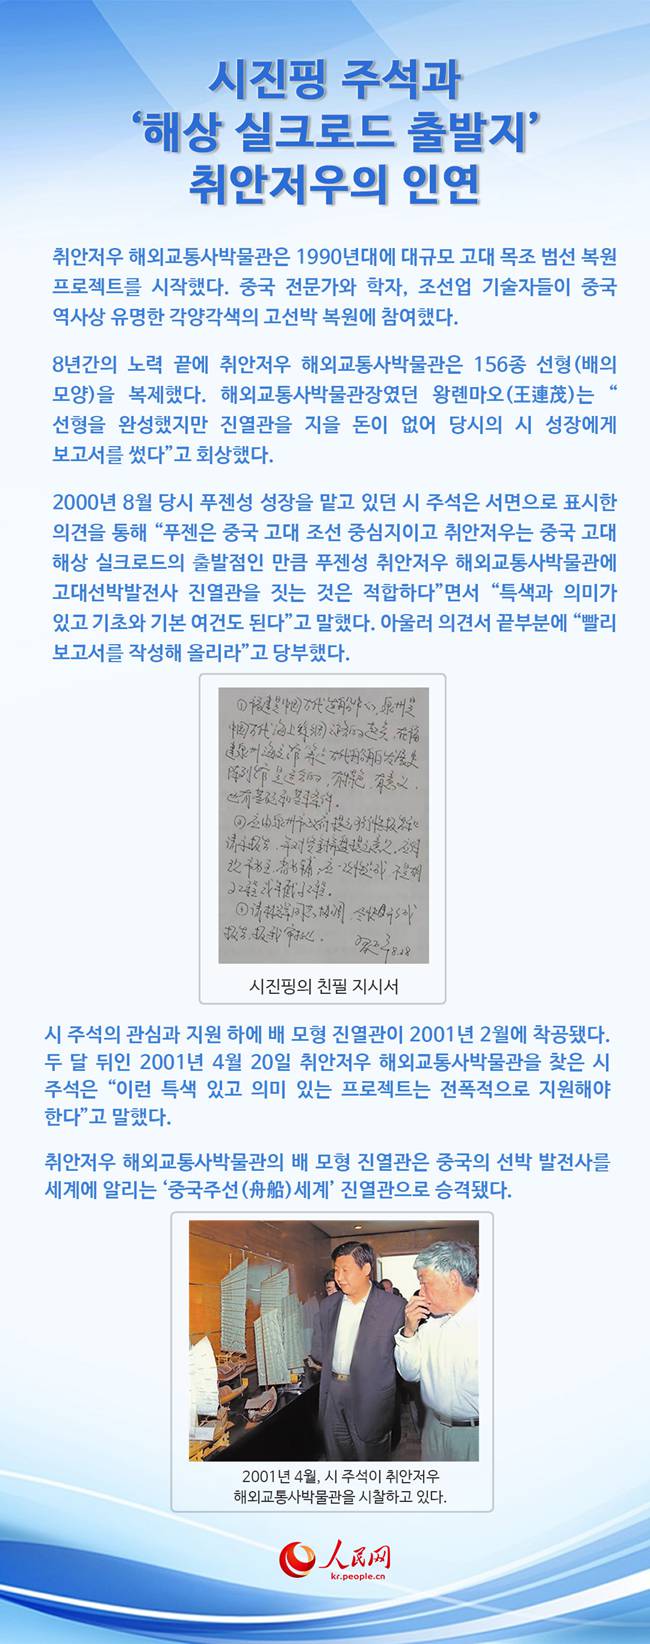 시진핑 주석과
‘해상 실크로드 출발지’
취안저우의 인연
취안저우 해외교통사박물관은 1990년대에 대규모 고대 목조 범선 복원
프로젝트를 시작했다. 중국 전문가와 학자, 조선업 기술자들이 중국
역사상 유명한 각양각색의 고선박 복원에 참여했다.
8년간의 노력 끝에 취안저우 해외교통사박물관은 156종 선형(배의
모양)을 복제했다. 해외교통사박물관장였던 왕롄마오(王連茂)는 “
선형을 완성했지만 진열관을 지을 돈이 없어 당시의 시 성장에게
보고서를 썼다”고 회상했다.
2000년 8월 당시 푸젠성 성장을 맡고 있던 시 주석은 서면으로 표시한
의견을 통해 “푸젠은 중국 고대 조선 중심지이고 취안저우는 중국 고대
해상 실크로드의 출발점인 만큼 푸젠성 취안저우 해외교통사박물관에
고대선박발전사 진열관을 짓는 것은 적합하다”면서 “특색과 의미가
있고 기초와 기본 여건도 된다”고 말했다. 아울러 의견서 끝부분에 “빨리
보고서를 작성해 올리라”고 당부했다.
①福建是中国古代造船中心，泉州是
中国古代海上丝绸之路的起点，在福
建泉州海交馆筹建古代船舶发展史
陈列馆是适合的，有特色，有意义，
也有基础和基本条件。
8.28
시진핑의 친필 지시서
시 주석의 관심과 지원 하에 배 모형 진열관이 2001년 2월에 착공됐다.
두 달 뒤인 2001년 4월 20일 취안저우 해외교통사박물관을 찾은 시
주석은 “이런 특색 있고 의미 있는 프로젝트는 전폭적으로 지원해야
한다”고 말했다.
취안저우 해외교통사박물관의 배 모형 진열관은 중국의 선박 발전사를
세계에 알리는 ‘중국주선(舟船)세계’ 진열관으로 승격됐다.
2001년 4월, 시 주석이 취안저우
해외교통사박물관을 시찰하고 있다.
人民网
kr.people.cn